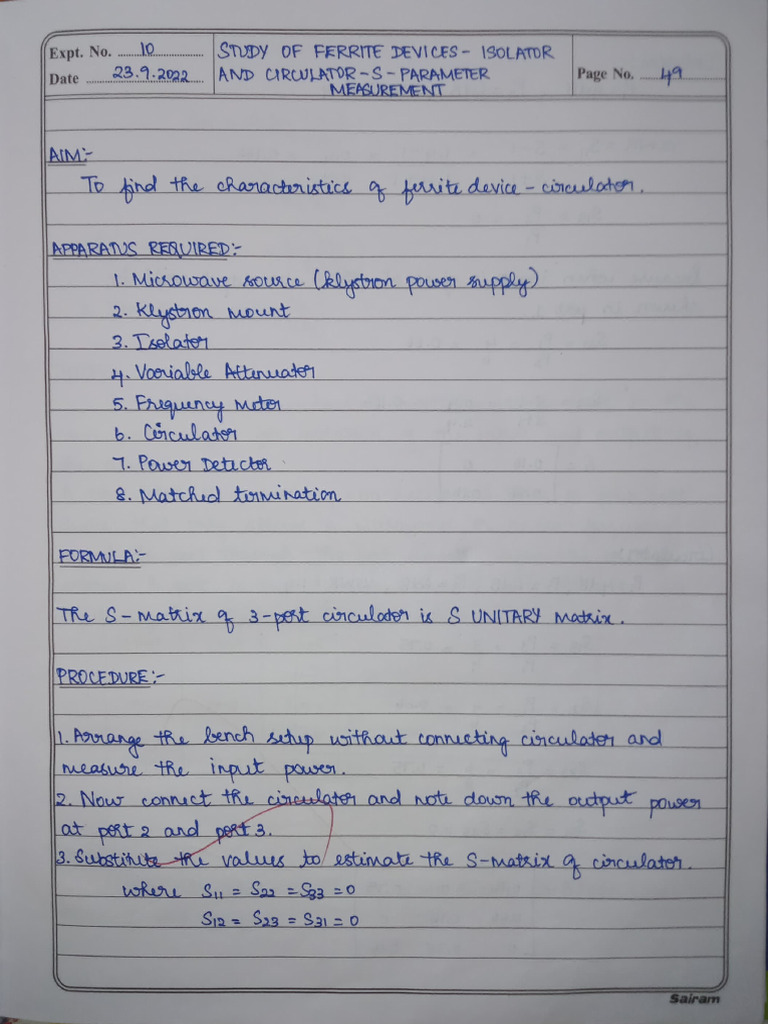 Expt. No. 10
Date 23.9.2022
STUDY OF FERRITE DEVICES - ISOLATOR
AND CIRCULATOR - S - PARAMETER
MEASUREMENT
Page No. 49
AIM:-
To find the characteristics of ferrite device - circulator.
APPARATUS REQUIRED:-
1. Microwave source (klystron power supply)
2. Klystron mount
3. Isolator
4. Variable Attenuator
5. Frequency meter
6. Circulator
7. Power Detector
8. Matched termination
FORMULA:-
The S-matrix of 3-port circulator is S UNITARY Matrix.
PROCEDURE:-
1. Arrange the bench setup without connecting circulator and
measure the input power.
2. Now connect the circulator and note down the output power
at port 2 and port 3.
3. Substitute the values to estimate the S-matrix of circulator.
where S11 = S22 = S33 = 0
S12 = S23 = S31 = 0
Sairam